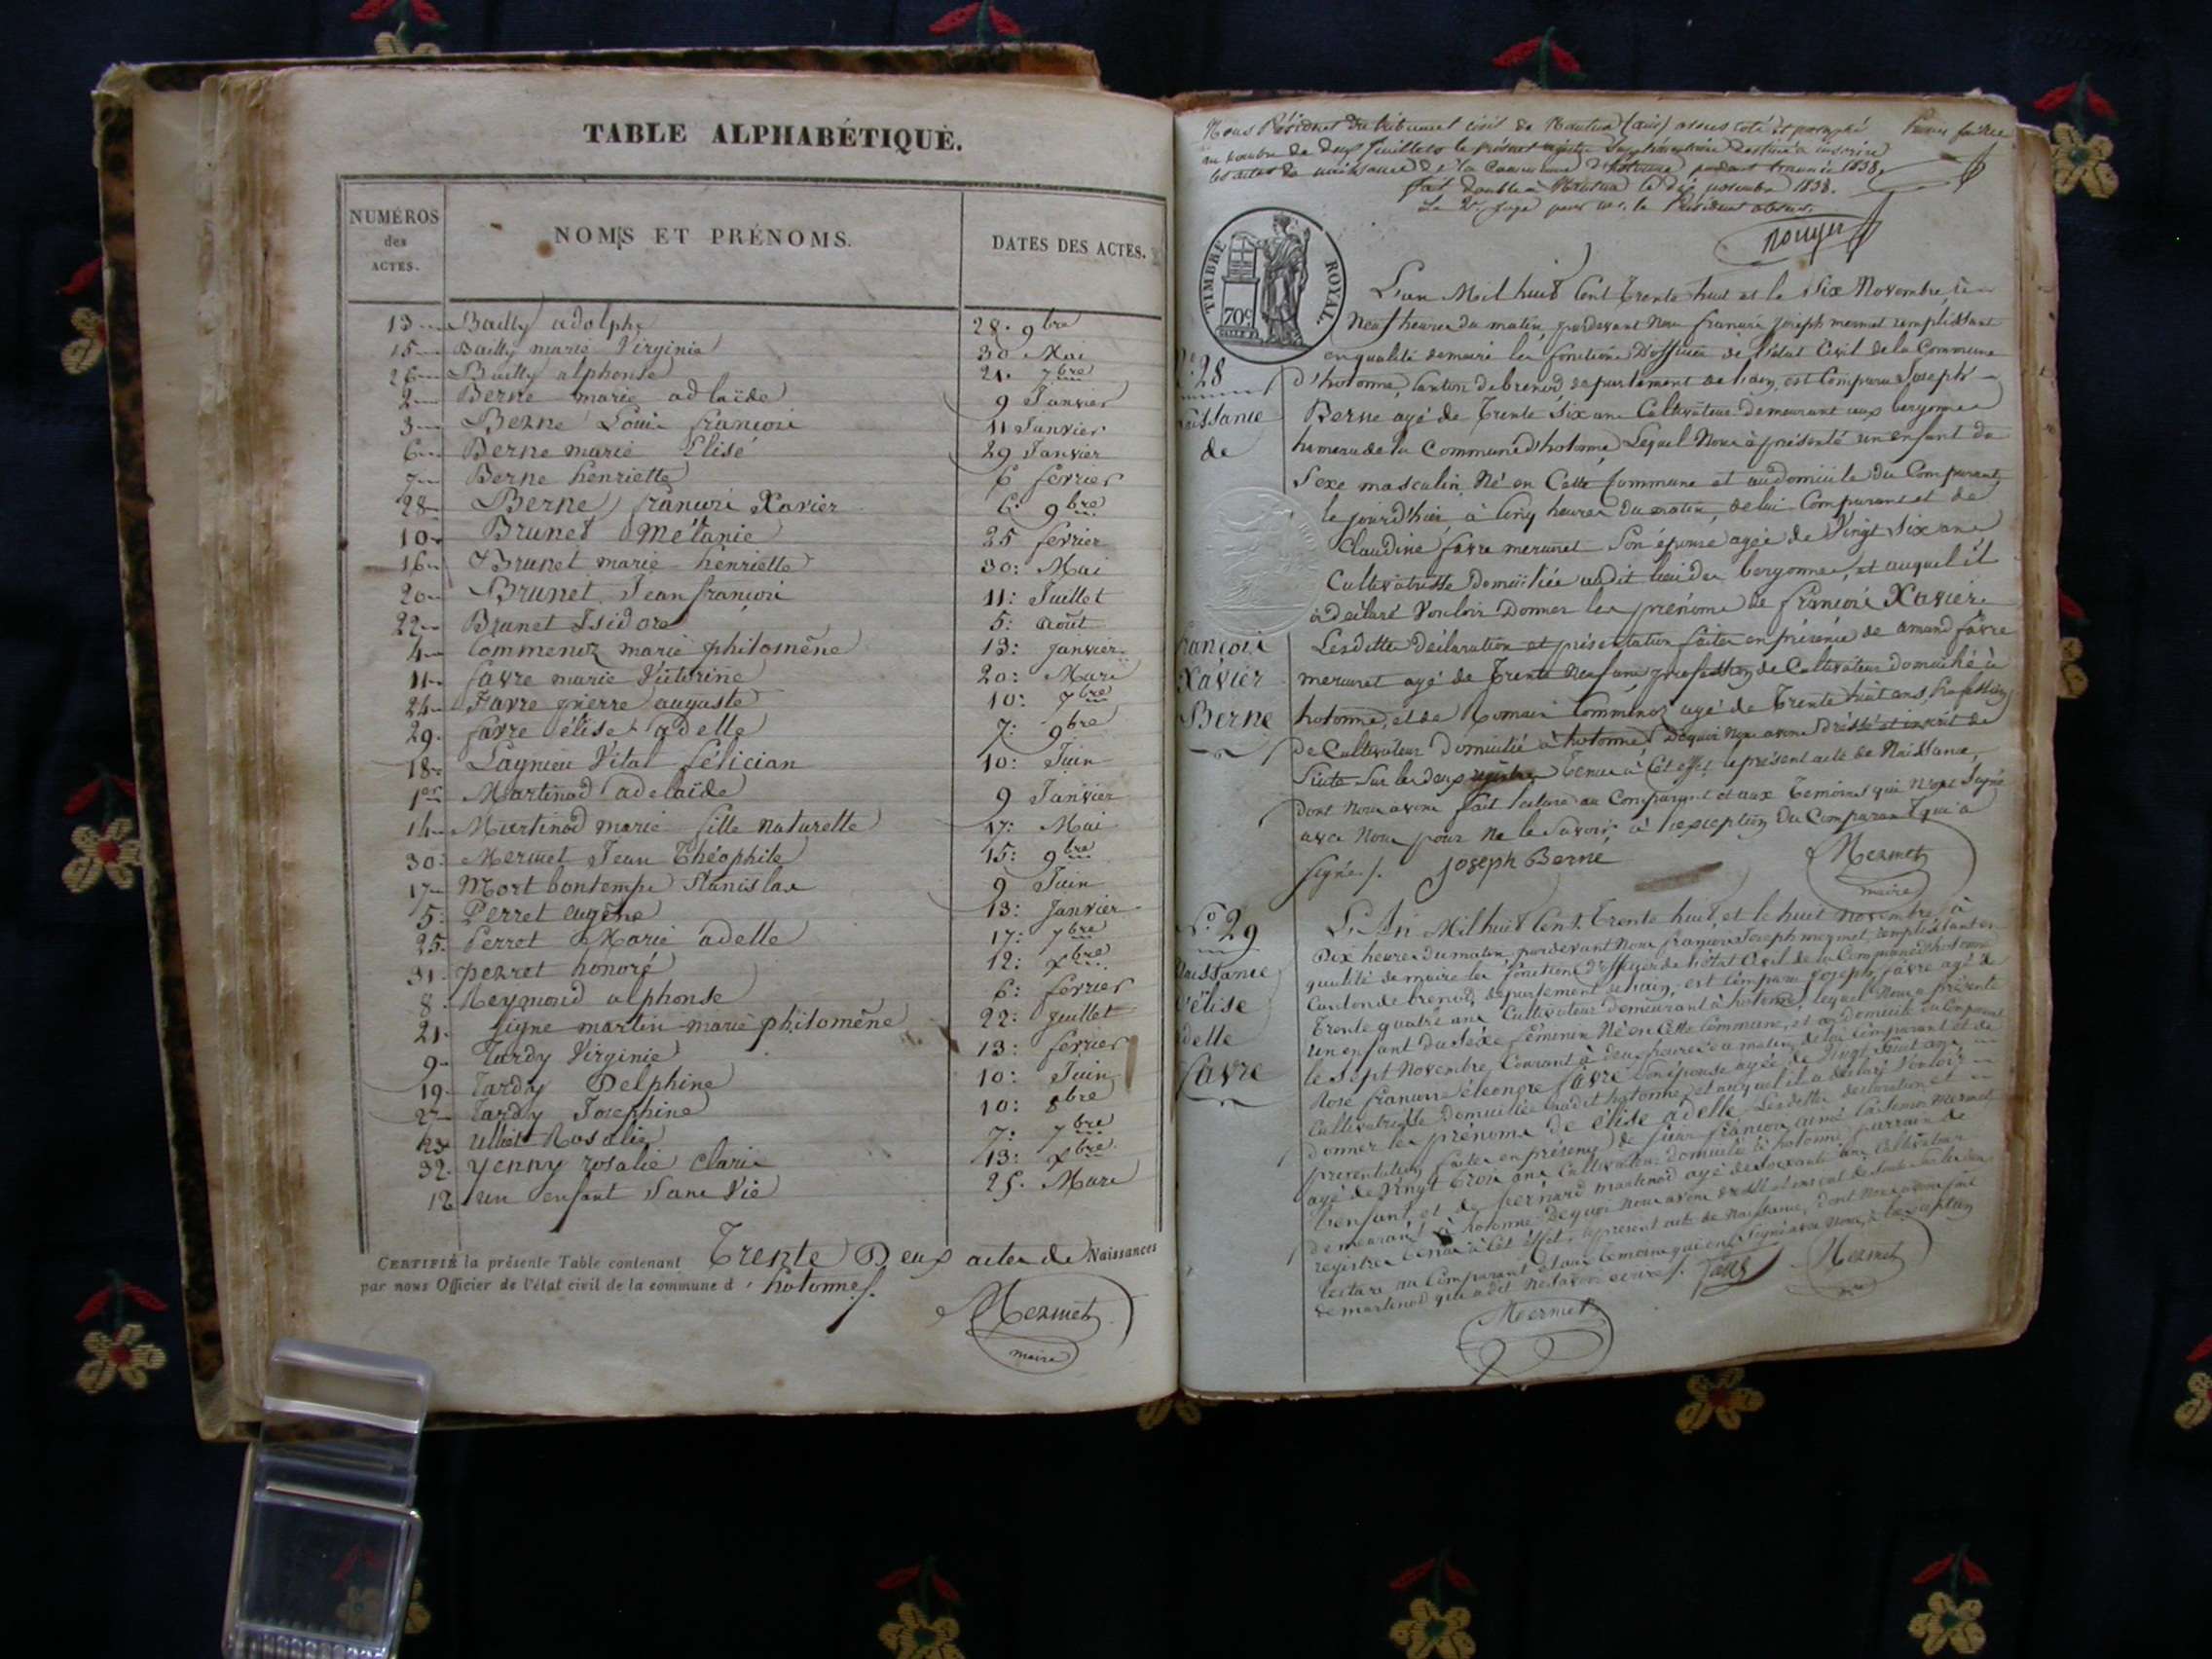 TABLE ALPHABÉTIQUE.
NUMÉROS des ACTES.
NOMS ET PRÉNOMS.
DATES DES ACTES.
13 Bailly adolphe 28. 9bre
15 Bailly marie Virginie 30 Mai
26 Bailly alphonse 21. 7bre
2 Berne marie adlaïde 9 Janvier
3 Berne Louis françois 11 Janvier
6 Berne marie Elisé 29 Janvier
7 Berne henriette 6 février
28 Berne françois Xavier 6. 9bre
10 Brunet Mélanie 25 février
16 Brunet marie henriette 30: Mai
20 Brunet Jean françois 11: Juillet
22 Brunet Isidore 5: Août
4 Commenoz marie philomène 13: janvier
11 favre marie Victorine 20: Mars
24 Favre pierre auguste 10: 7bre
29. favre élise adelle 7: 9bre
18 Laynieu Vital félician 10: Juin
1er Martinod adelaïde 9 Janvier
14 Martinod marie fille naturelle 17: Mai
30: Mermet Jean Théophile 15: 9bre
17 Mort bontemps Stanislas 9 Juin
5: Perret eugène 13: Janvier
25. Perret Marie adelle 17: 7bre
31. perret honoré 12: Xbre
8. Reymond alphonse 6: février
21. signe martin marie philomène 22: Juillet
9 Tardy Virginie 13: février
19 Tardy Delphine 10: Juin
27 Tardy Josephine 10: 8bre
23 Ulliet Rosalie 7: 7bre
32. yenny rosalie Claris 13: Xbre
12 un enfant Sans Vie 25. Mars
CERTIFIÉ la présente Table contenant Trente Deux actes de Naissances
par nous Officier de l'état civil de la commune d'hotonnes.
Mermet
maire
Nous Président du tribunal civil de Nantua (ain) avons coté et paraphé
au nombre de deux feuillets le présent registre supplémentaire destiné à inscrire
les actes de naissance de la Commune d'hotonne pendant l'année 1838.
fait double à Nantua le dix novembre 1838.
Le 2e. Juge pour Mr. le Président absent.
Rouyer
TIMBRE ROYAL.
70c
L'an Mil huit Cent Trente huit et le Six Novembre, à
Neuf heures du matin, pardevant Nous françois joseph mermet remplissant
en qualité de maire les fonctions D'officier de l'état Civil de la Commune
No. 28
d'hotonne, Canton de brenod, département de l'ain, est Comparu Joseph
Naissance
Berne agé de Trente Six ans Cultivateur demeurant aux bergonnes
de
hameau de la Commune d'hotonne, Lequel Nous à présenté un enfant du
Sexe masculin, Né en Cette Commune et au domicile du Comparant
le jourd'hier, à Cinq heures du matin, de lui Comparant et de
Claudine favre mermet Son épouse agée de Vingt Six ans
Cultivatrisse Domiciliée audit lieu des bergonnes, et auquel il
à déclaré Vouloir Donner les prénoms de françois Xavier.
françois
Xavier
Berne
Lesdittes Déclaration et présentation faites en présence de amand favre
mermet agé de Trente Neuf ans profession de Cultivateur domicilié à
hotonne, et de Romain Comminoz agé de Trente huit ans, profession
de Cultivateur Domicilié à hotonne, Dequoi Nous avons Dréssé et inscrit de
Suite Sur les deux registres Tenus à Cet effet, le présent acte de Naissance,
dont Nous avons fait lecture au Comparant et aux Témoins qui n'ont Signé
avec Nous pour Ne le Savoir, à l'exception du Comparant qui a
Signé. Joseph Berne Mermet
maire
No. 29
Naissance
d'élise
adelle
favre
L'An Mil huit Cent Trente huit, et le huit novembre, à
Dix heures du matin, pardevant Nous françois Joseph mermet, remplissant en
qualité de maire les fonctions D'officier de l'état Civil de la Commune d'hotonne
Canton de brenod, département de l'ain, est Comparu Joseph favre agé de
Trente quatre ans Cultivateur demeurant à hotonne, lequel Nous a présenté
un enfant du Sexe féminin Né en Cette Commune, et au domicile du Comparant
le Sept Novembre Courant à deux heures du matin, de lui Comparant et de
Rose françoise éléonore favre Son épouse agée de Vingt huit ans
Cultivatrisse Domiciliée audit hotonne, et auquel il a déclaré Vouloir
donner les prénoms de élise adelle. Lesdittes déclaration et
présentation faites en présence de françois aimé mermet
agé de Vingt Trois ans Cultivateur domicilié à hotonne parrain de
l'enfant, et de bernard martinod agé de Soixante ans Cultivateur
demeurant à hotonne Dequoi Nous avons dréssé et inscrit de suite sur les deux
registres Tenus à Cet effet, le présent acte de Naissance, dont Nous avons fait
lecture au Comparant et aux Témoins qui ont Signé avec Nous, à l'exception
de martinod qui a dit ne savoir écrire. favre Mermet
Mermet